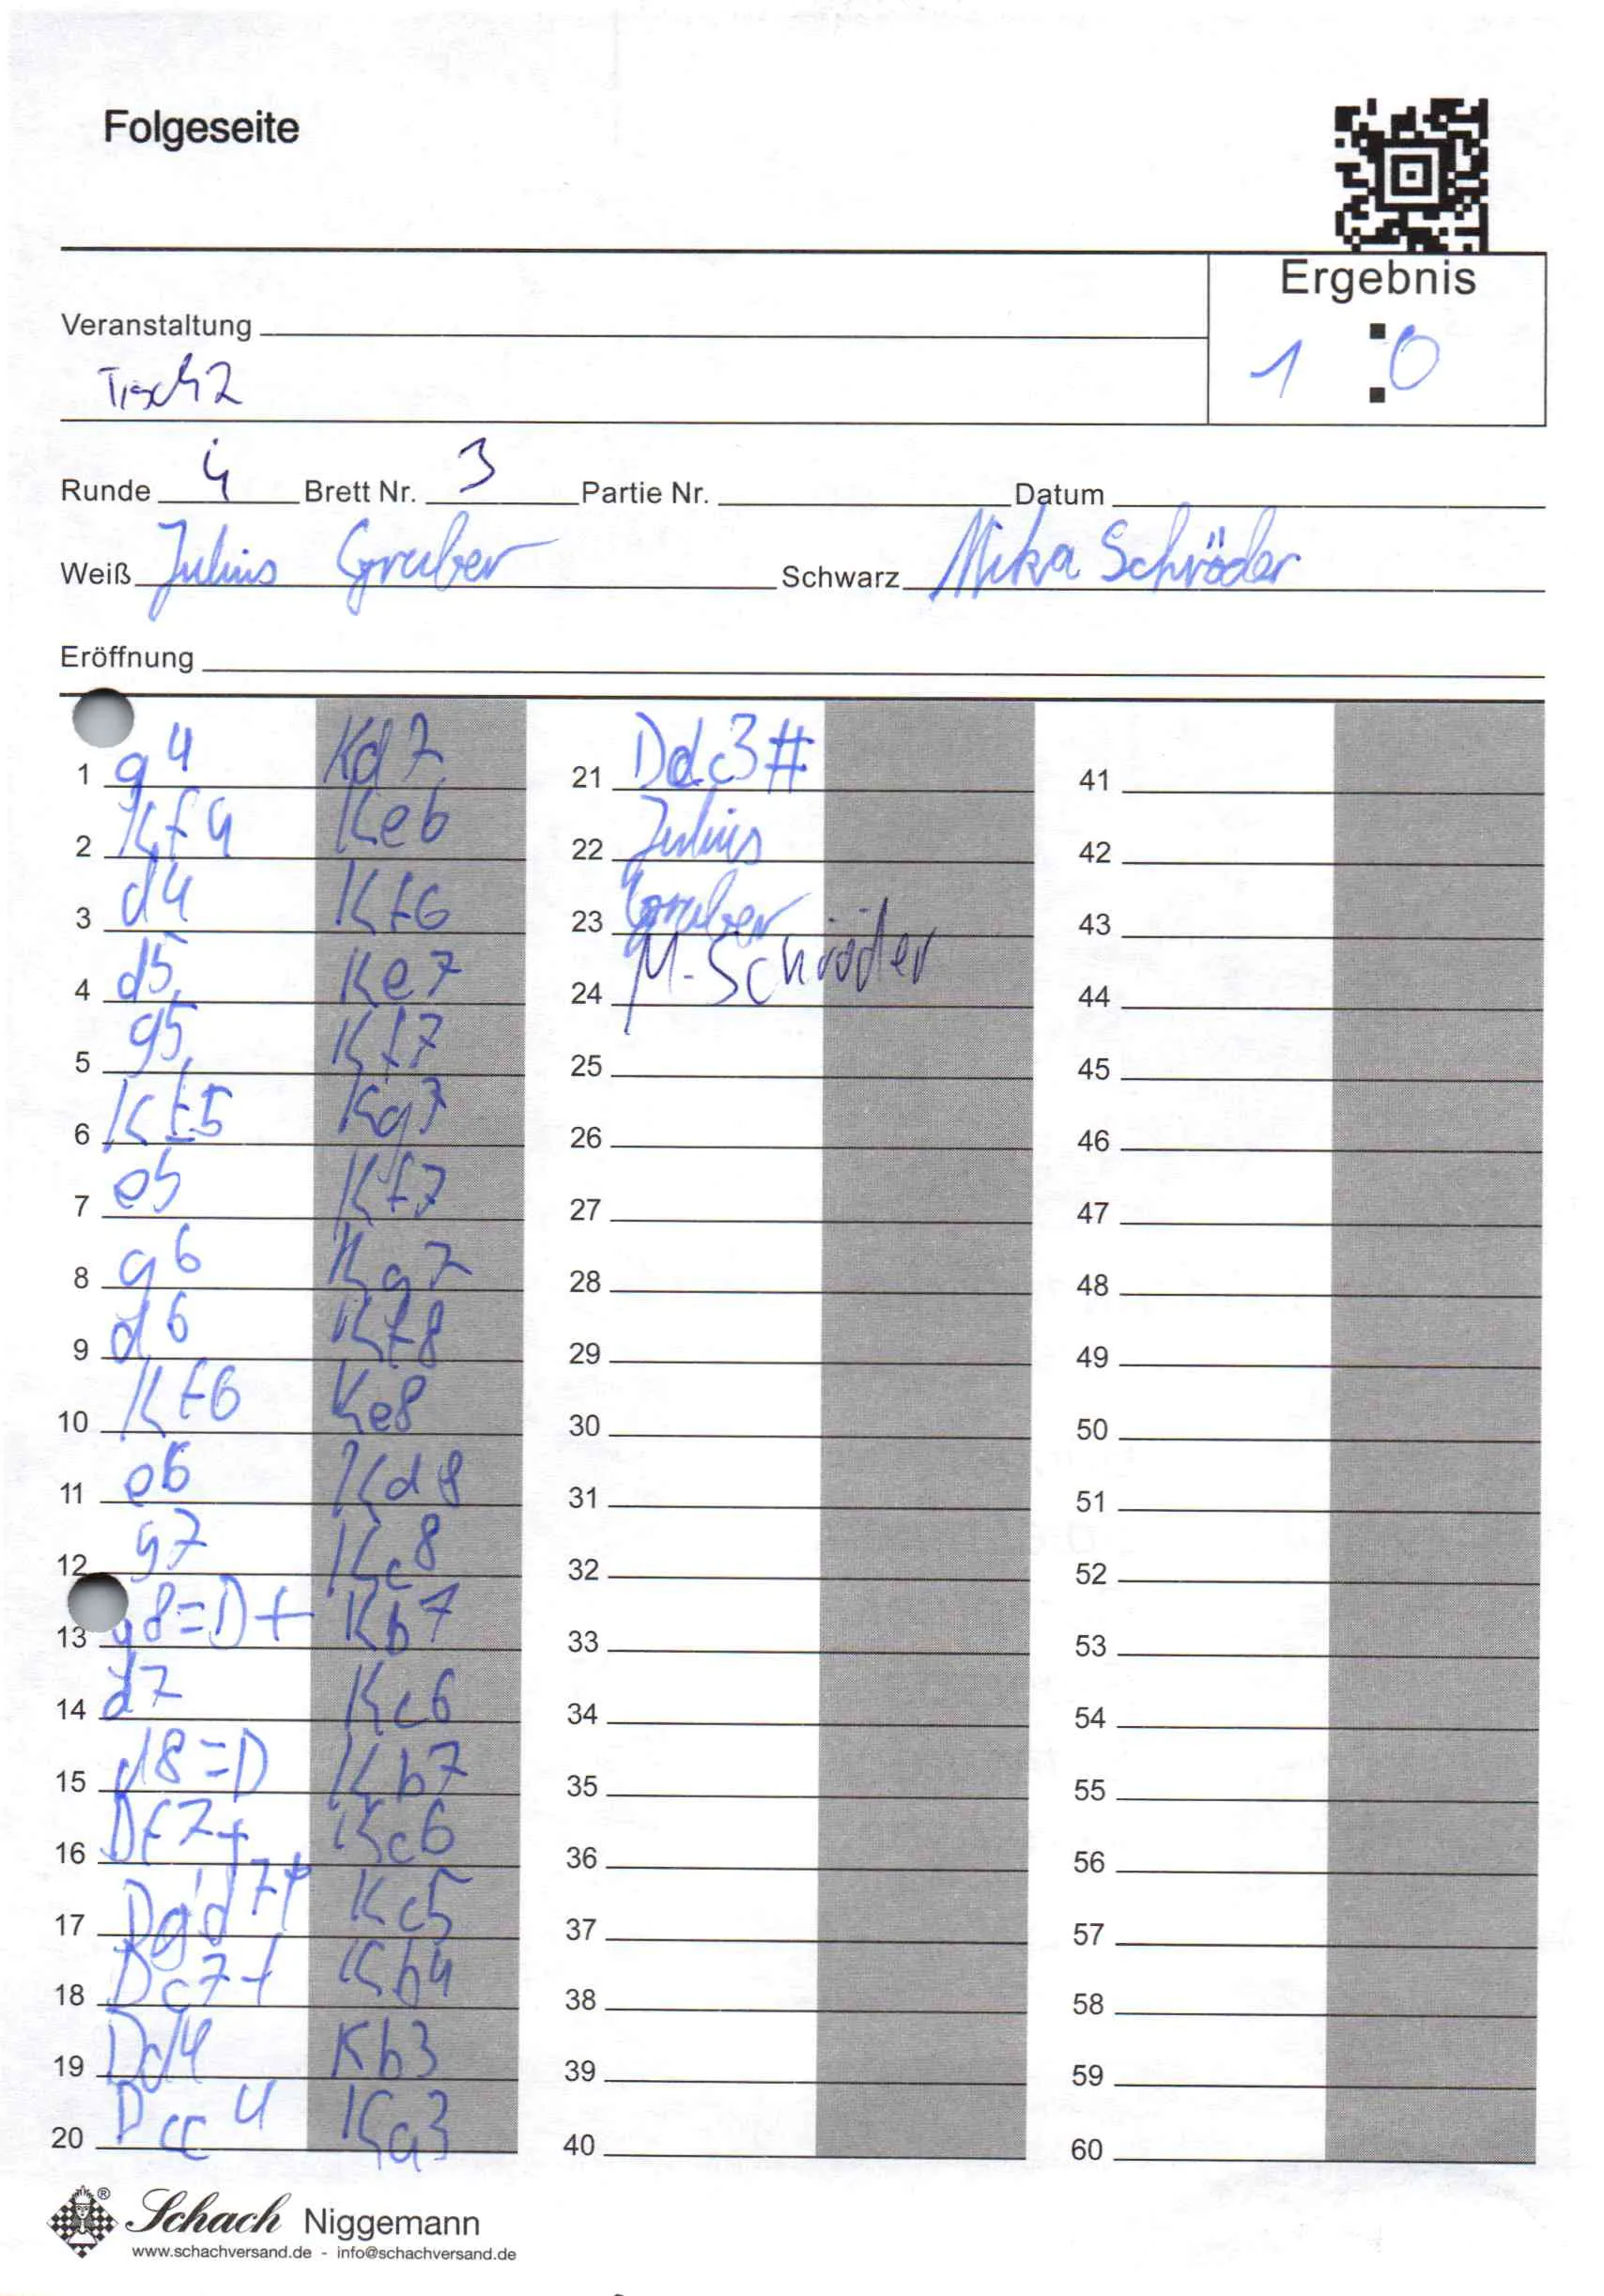 Folgeseite
Ergebnis
1 : 0
Veranstaltung
Tisch 2
Runde 4 Brett Nr. 3 Partie Nr. Datum
Weiß Julius Gruber Schwarz Mika Schröder
Eröffnung
1 g4 Kd7
2 Kf4 Ke6
3 d4 Kf6
4 d5 Ke7
5 g5 Kf7
6 Kf5 Kg7
7 e5 Kf7
8 g6 Kg7
9 d6 Kf8
10 Kf6 Ke8
11 e6 Kd8
12 g7 Kc8
13 g8=D+ Kb7
14 d7 Kc6
15 d8=D Kb7
16 Df7+ Kc6
17 Dgd7+ Kc5
18 Dc7+ Kb4
19 Dd4 Kb3
20 Dcc4 Ka3
21 Ddc3#
22 Julius
23 Gruber
24 M. Schröder
25
26
27
28
29
30
31
32
33
34
35
36
37
38
39
40
41
42
43
44
45
46
47
48
49
50
51
52
53
54
55
56
57
58
59
60
® Schach Niggemann
www.schachversand.de - info@schachversand.de